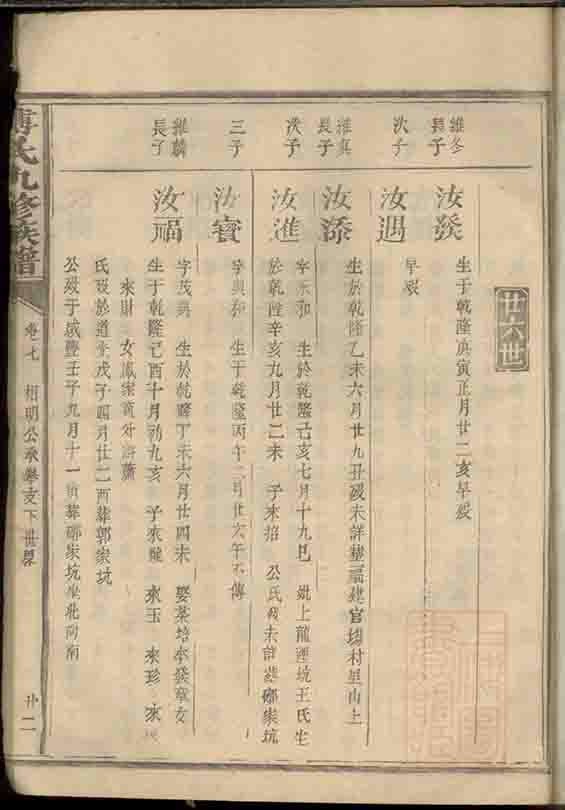 廿六世
維冬
長子
汝發
生于乾隆庚寅正月廿二亥早歿
次子
汝遇
早歿
長子
汝添
生於乾隆乙未六月廿九丑歿未詳葬福建官塲村里山上
次子
汝進
字永和 生於乾隆己亥七月十九巳 娶上龍運坑王氏生
於乾隆辛亥九月廿二未 子來招 公氏歿未詳葬鄒家坑
三子
汝寶
字興和 生于乾隆丙午二月廿六午不傳
維麟
長子
汝福
字茂興 生於乾隆丁未六月廿四未 娶茶培李發章女
生于乾隆己酉十月初九亥 子來 來玉 來珍 來
來財 女鳳
氏歿於道光戊子四月廿二酉葬郭家坑
公歿于咸豐壬子九月十一寅葬鄒家坑坐北向南
傅氏九修族譜
卷七 相明公承舉支下世系
廿二